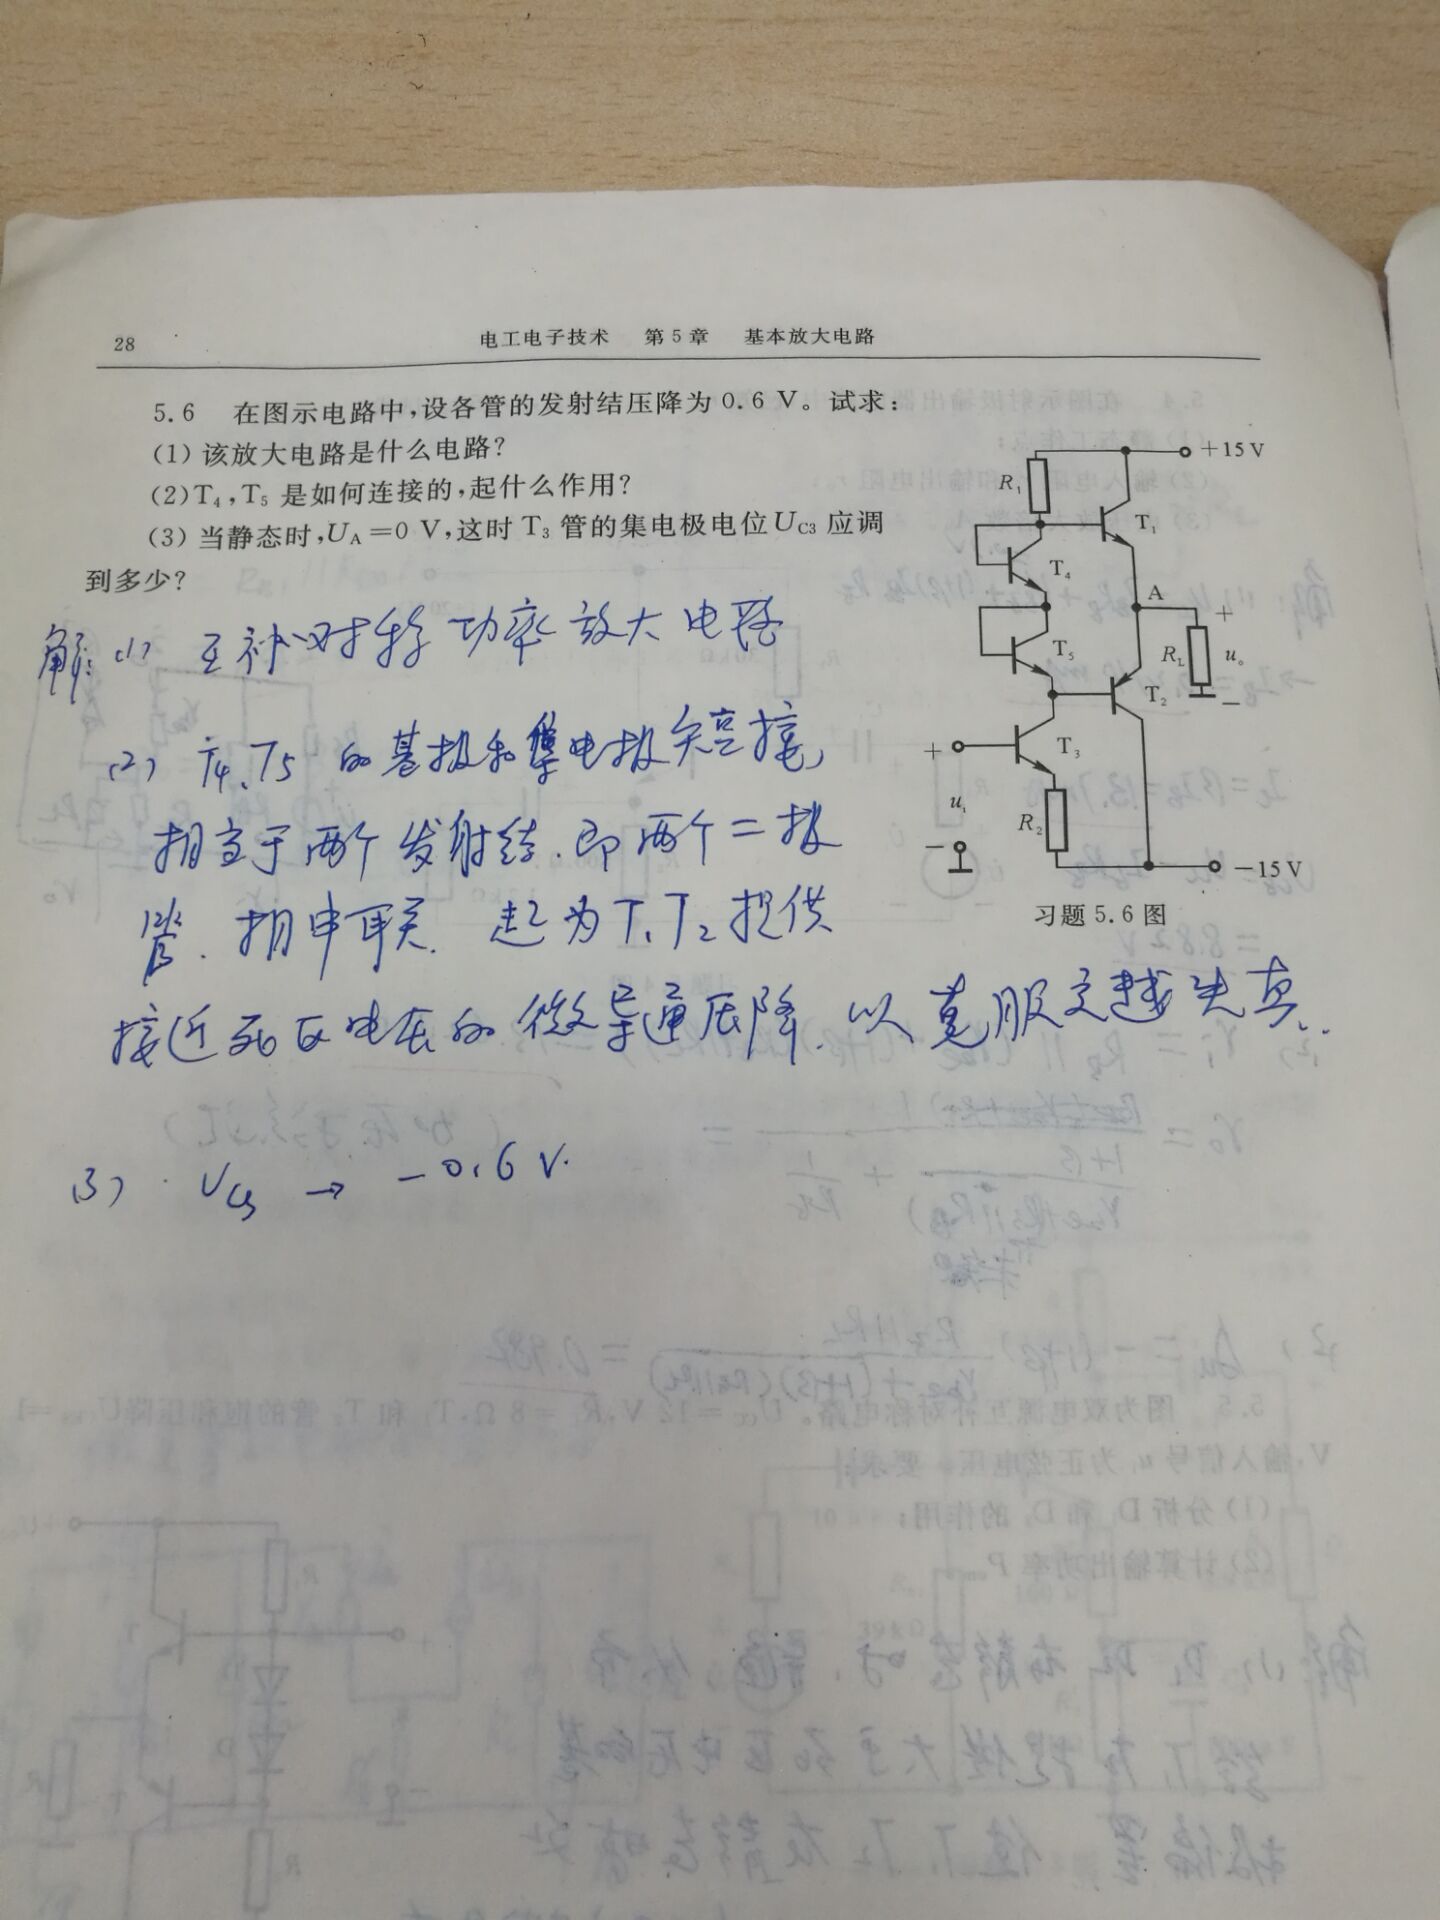 28
电工电子技术 第5章 基本放大电路
5.6 在图示电路中,设各管的发射结压降为0.6 V。试求:
(1) 该放大电路是什么电路?
(2) T₄,T₅ 是如何连接的,起什么作用?
(3) 当静态时,U_A=0 V,这时 T₃ 管的集电极电位U_C3 应调
到多少?
+15 V
R₁
T₁
T₄
A
+
T₅
R_L
u_o
T₂
−
+
T₃
u_i
R₂
−
−15 V
习题 5.6 图
解: (1) 互补对称功率放大电路
(2) T₄、T₅ 的基极和集电极短接,
相当于两个发射结.即两个二极
管.相串联. 起为T₁T₂提供
接近死区电压的微导通压降.以克服交越失真.
(3) U_C3 → −0.6 V.